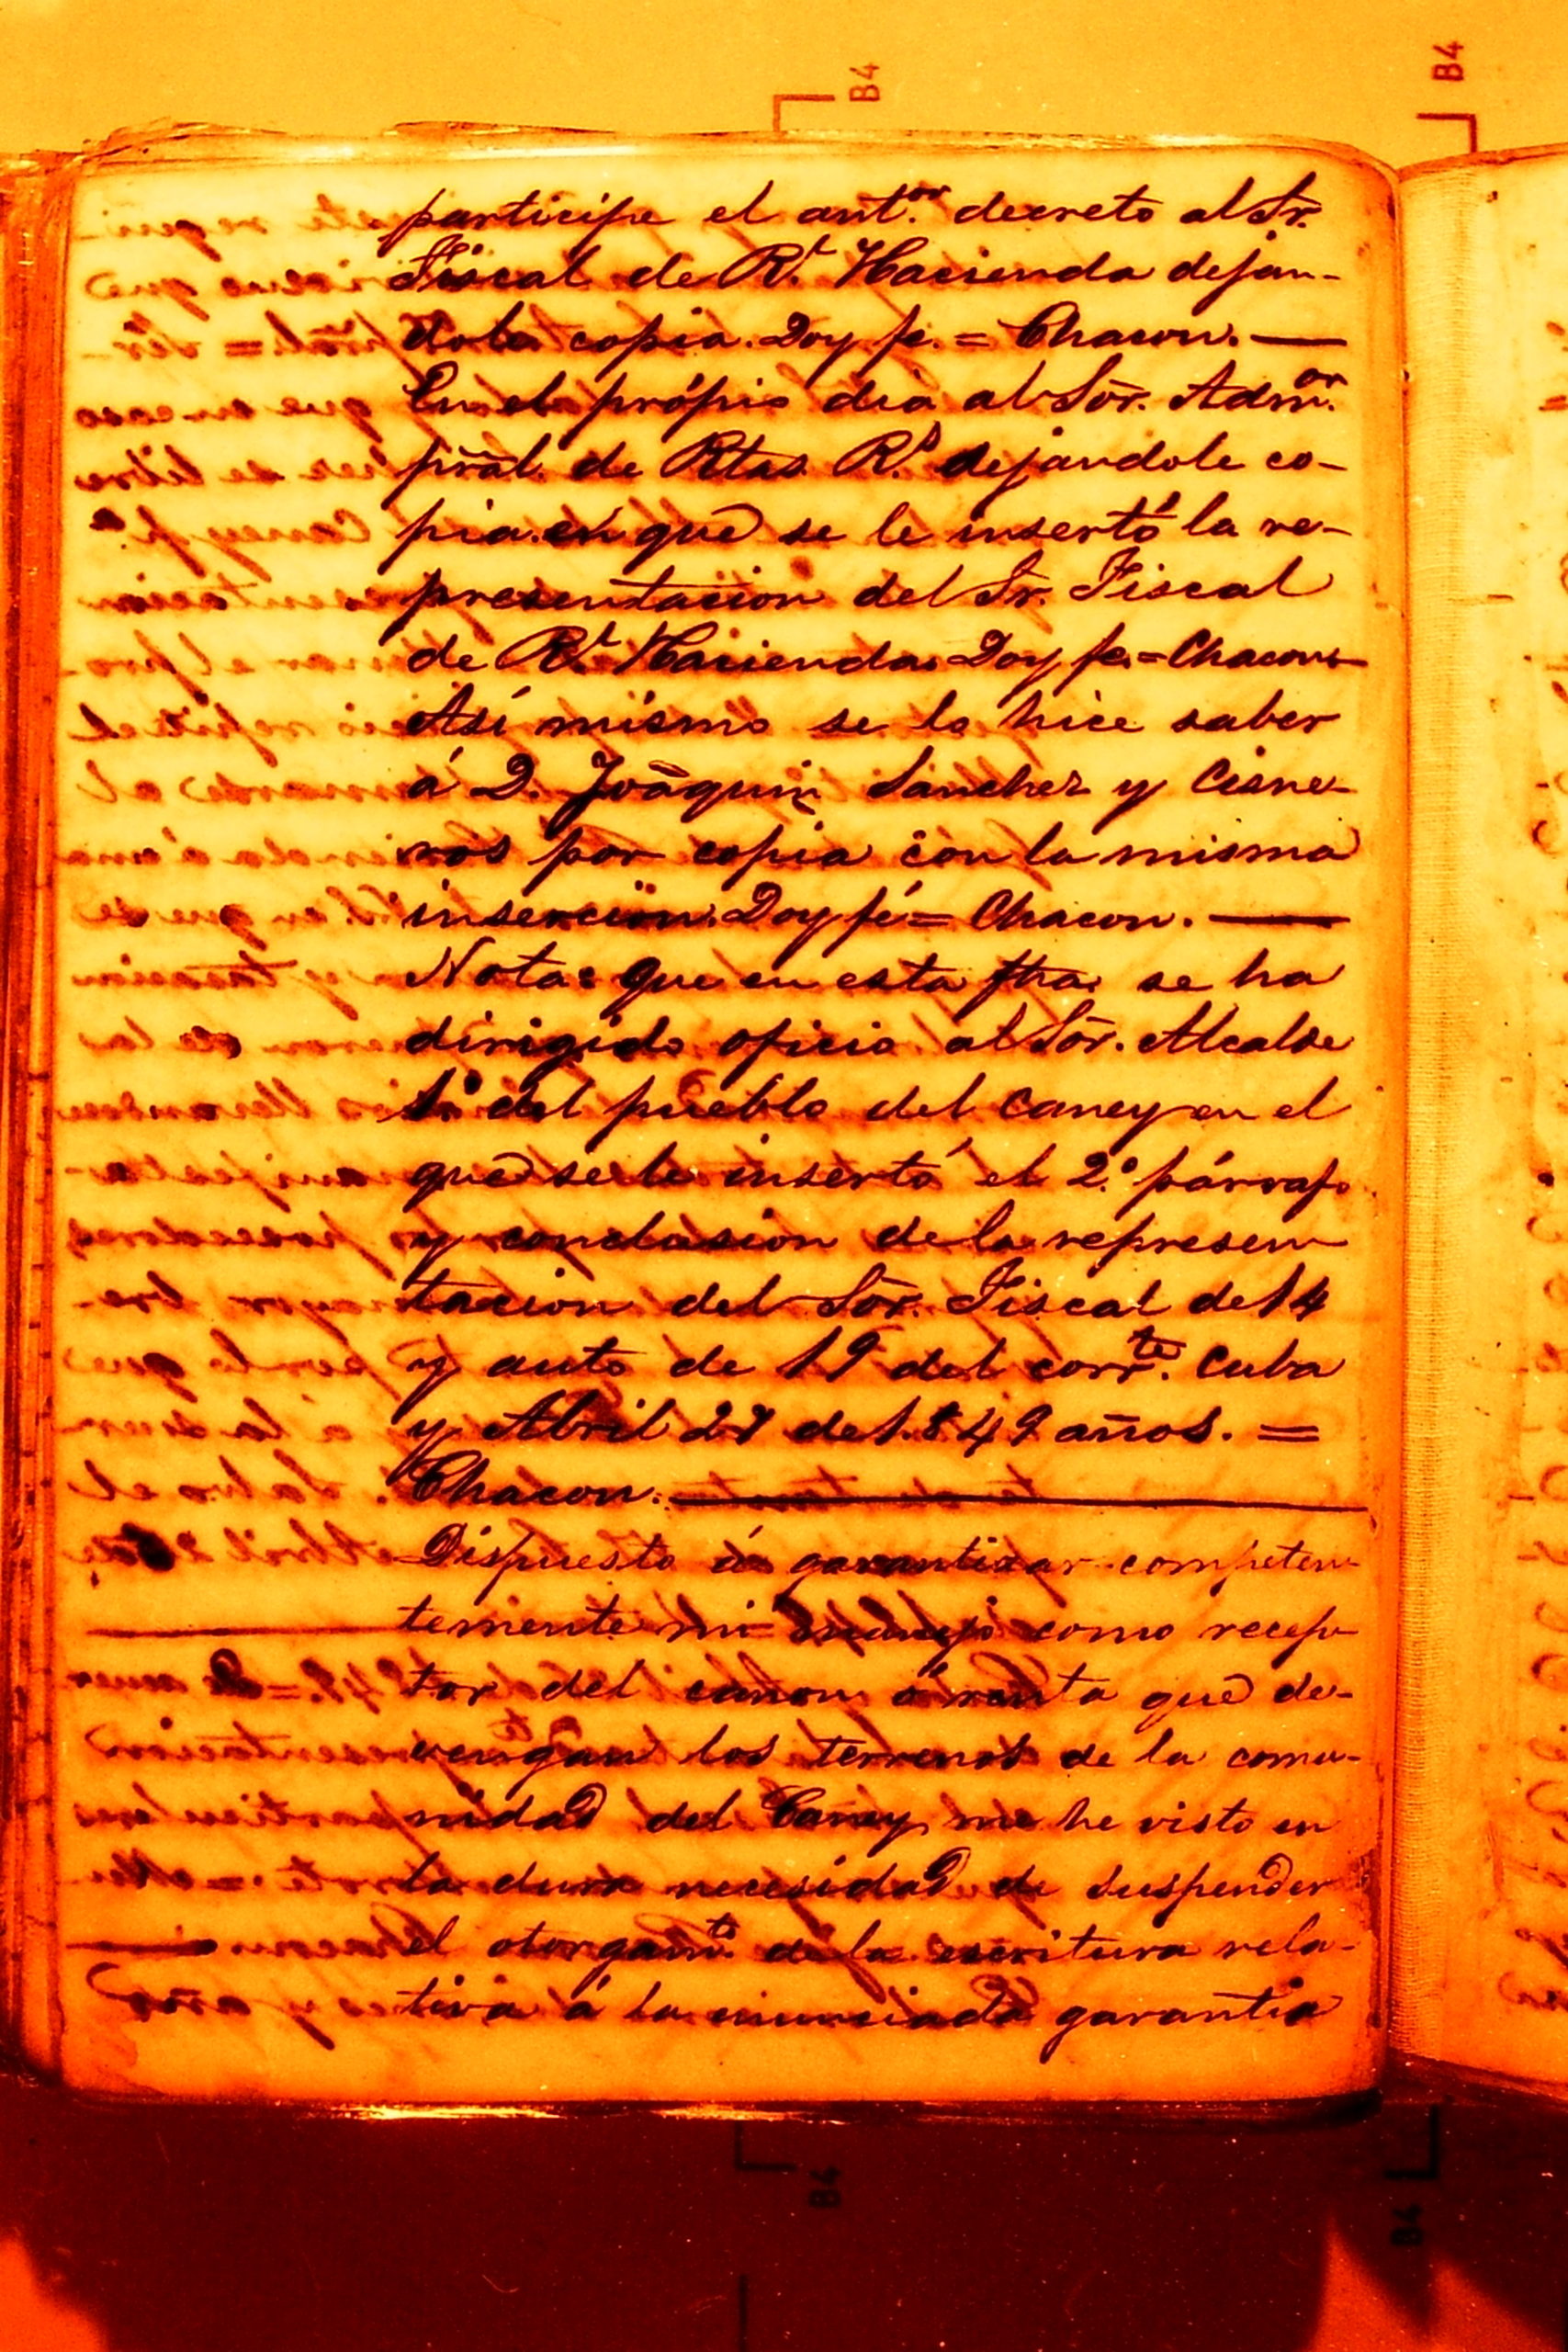 B4
B4
participe el ant.or decreto al Sr.
Fiscal de Rl. Hacienda dejan-
dole copia. Doy fe. = Chacon. —
En el própio dia al Sōr. Adm.or
pr̃al. de Rtas. Rs. dejandole co-
pia en que se le insertó la re-
presentacion del Sr. Fiscal
de Rl. Hacienda. Doy fe. = Chacon. —
Así mísmo se lo hice saber
á D. Joāquin Sanchez y Cisne-
ros por copia con la misma
insercion. Doy fé = Chacon. —
Nota: que en esta fha. se ha
dirigido oficio al Sōr. Alcalde
1.º del pueblo del Caney en el
que se le insertó el 2.º párrafo
y conclusion de la represen-
tacion del Sōr. Fiscal de 14
y auto de 19 del corr.te Cuba
y Abril 27 de 1.849 años. =
Chacon. —
Dispuesto á garantizar competen-
temente mi manejo como recep-
tor del canon ó renta que de-
vengan los terrenos de la comu-
nidad del Caney, me he visto en
la dura necesidad de suspender
el otorgam.to de la escritura rela-
tiva á la enunciada garantia
B4
B4